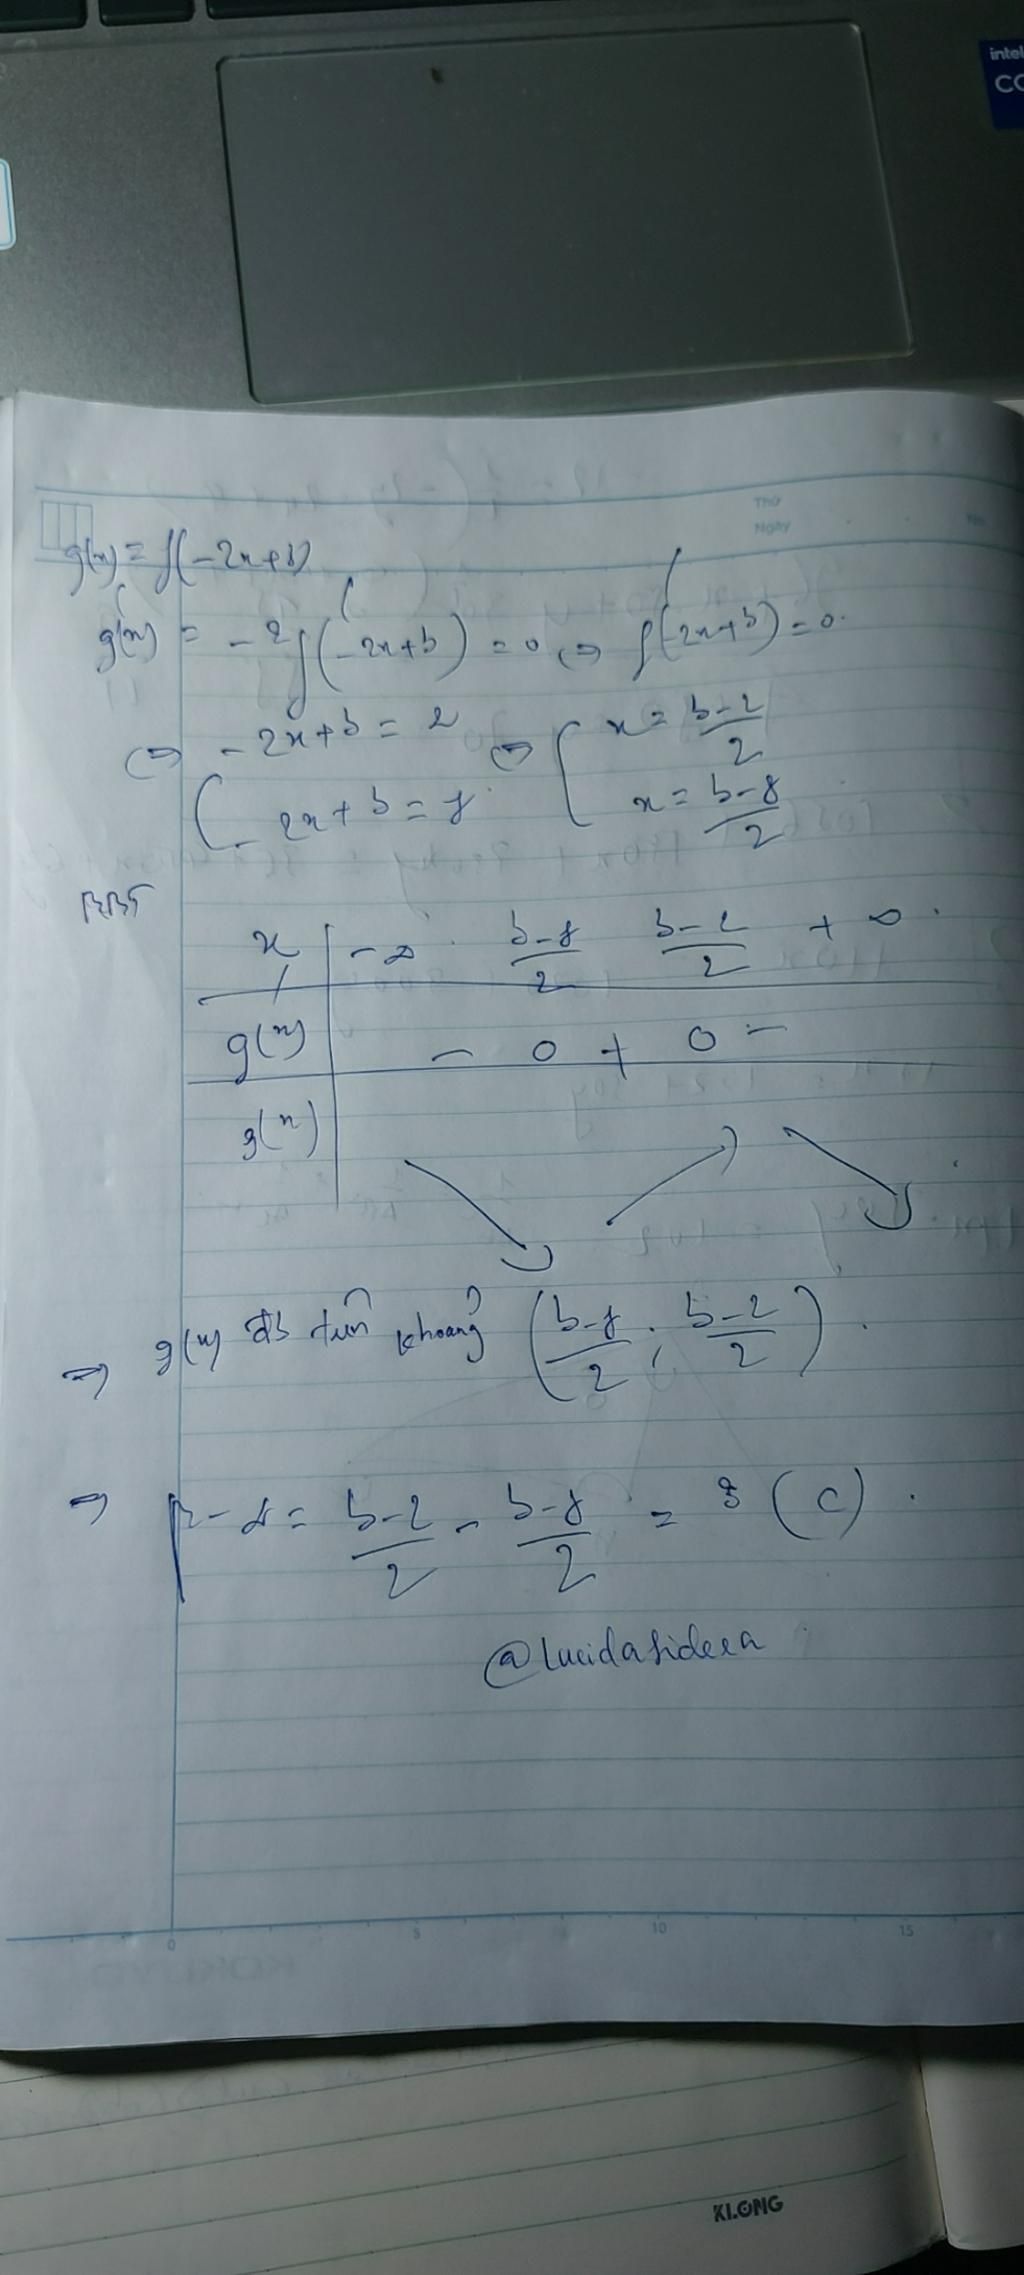 intel
CO
Thứ
Ngày
No.
g(x) = f(-2x+b)
g'(x) = -2f'(-2x+b) = 0 ⇔ f'(-2x+b) = 0.
⇔ [ -2x+b = 2 ⇔ [ x = b-2/2
-2x+b = 8 x = b-8/2
BBT
x | -∞ b-8/2 b-2/2 +∞
g'(x) | - 0 + 0 -
g(x)
⇒ g(x) đb trên khoảng (b-8/2 ; b-2/2).
⇒ β-α = b-2/2 - b-8/2 = 3 (C).
@lucidasidera
0 5 10 15
KLONG